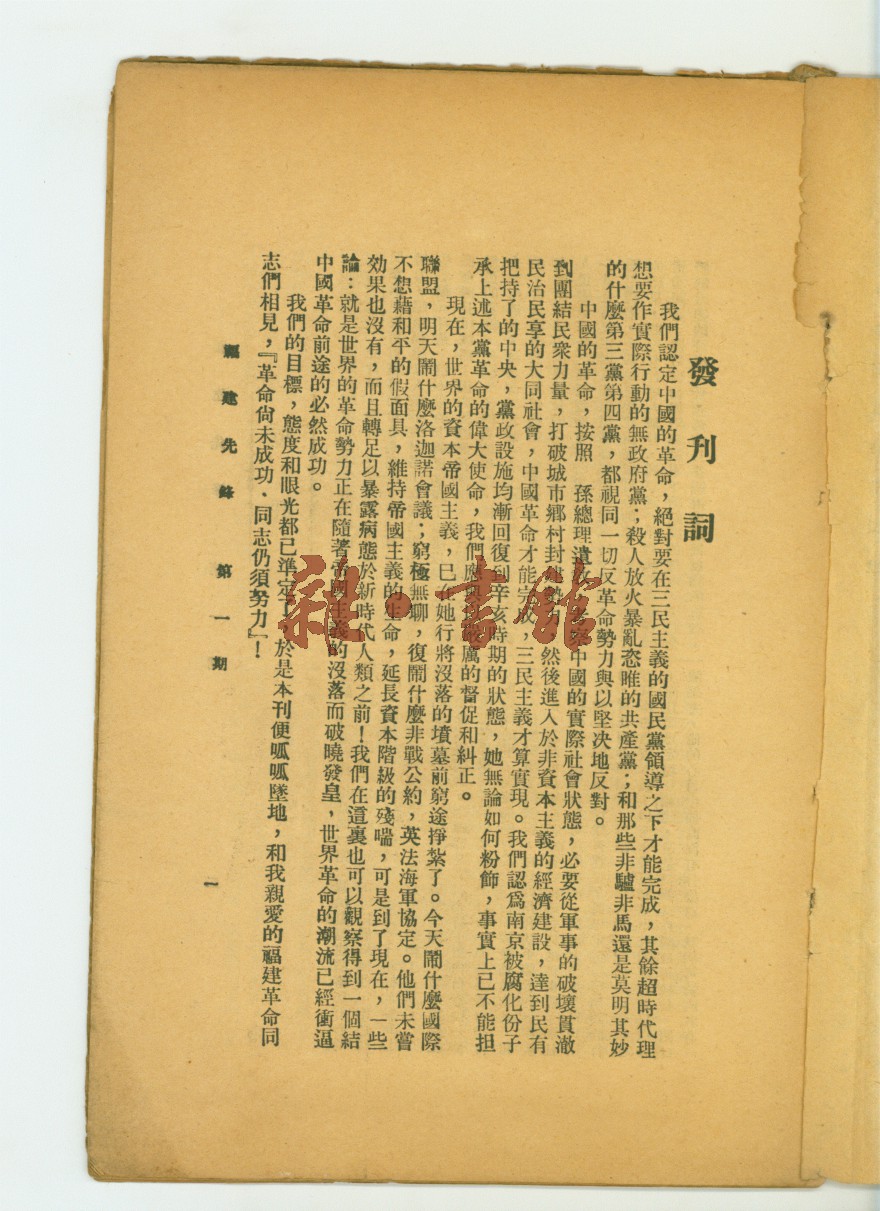 發刊詞
我們認定中國的革命，絕對要在三民主義的國民黨領導之下才能完成，其餘超時代理
想要作實際行動的無政府黨；殺人放火暴亂恣睢的共產黨；和那些非驢非馬還是莫明其妙
的什麼第三黨第四黨，都視同一切反革命勢力與以堅决地反對。
中國的革命，按照　孫總理遺　考察中國的實際社會狀態，必要從軍事的破壞貫澈
到團結民衆力量，打破城市鄉村封建勢力，然後進入於非資本主義的經濟建設，達到民有
民治民享的大同社會，中國革命才能完成，三民主義才算實現。我們認爲南京被腐化份子
把持了的中央，黨政設施均漸回復到辛亥時期的狀態，她無論如何粉飾，事實上已不能担
承上述本黨革命的偉大使命，我們應與　厲的督促和糾正。
現在，世界的資本帝國主義，已在她行將沒落的墳墓前窮途掙紮了。今天鬧什麼國際
聯盟，明天鬧什麼洛迦諾會議；窮極無聊，復鬧什麼非戰公約，英法海軍協定。他們未嘗
不想藉和平的假面具，維持帝國主義的生命，延長資本階級的殘喘，可是到了現在，一些
效果也沒有，而且轉足以暴露病態於新時代人類之前！我們在這裏也可以觀察得到一個結
論：就是世界的革命勢力正在隨著帝國主義的沒落而破曉發皇，世界革命的潮流已經衝逼
中國革命前途的必然成功。
我們的目標，態度和眼光都已準定了，於是本刊便呱呱墜地，和我親愛的福建革命同
志們相見，『革命尙未成功、同志仍須努力』！
福建先鋒　第一期
一
雜·書館